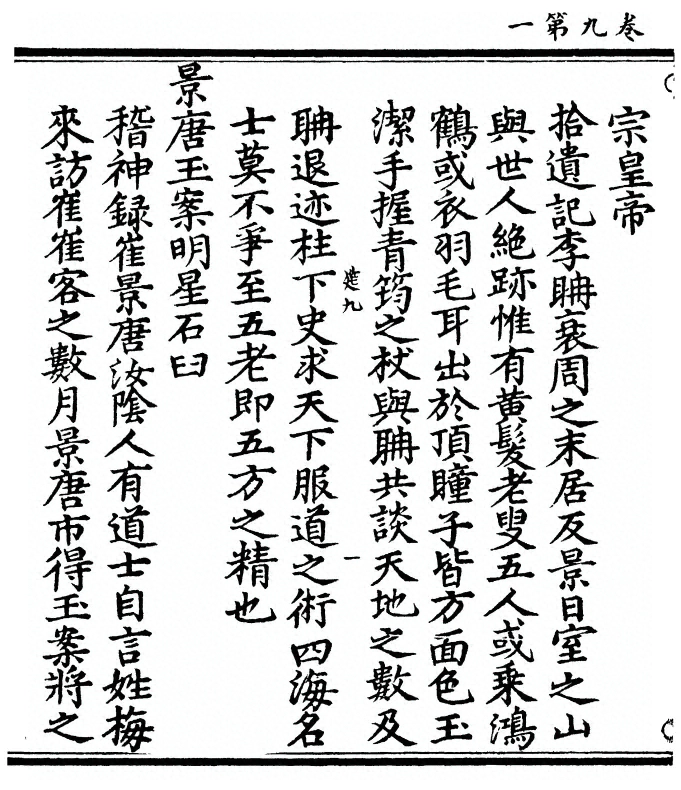 卷九第一
宗皇帝
拾遺記李聃衰周之末居反景日室之山
與世人絶跡惟有黄髮老叟五人或乘鴻
鶴或衣羽毛耳出於頂瞳子皆方面色玉
潔手握青筠之杖與聃共談天地之數及
聃退迹柱下史求天下服道之術四海名
士莫不爭至五老即五方之精也
景唐玉案明星石臼
稽神録崔景唐汝陰人有道士自言姓梅
來訪崔崔客之數月景唐市得玉案將之